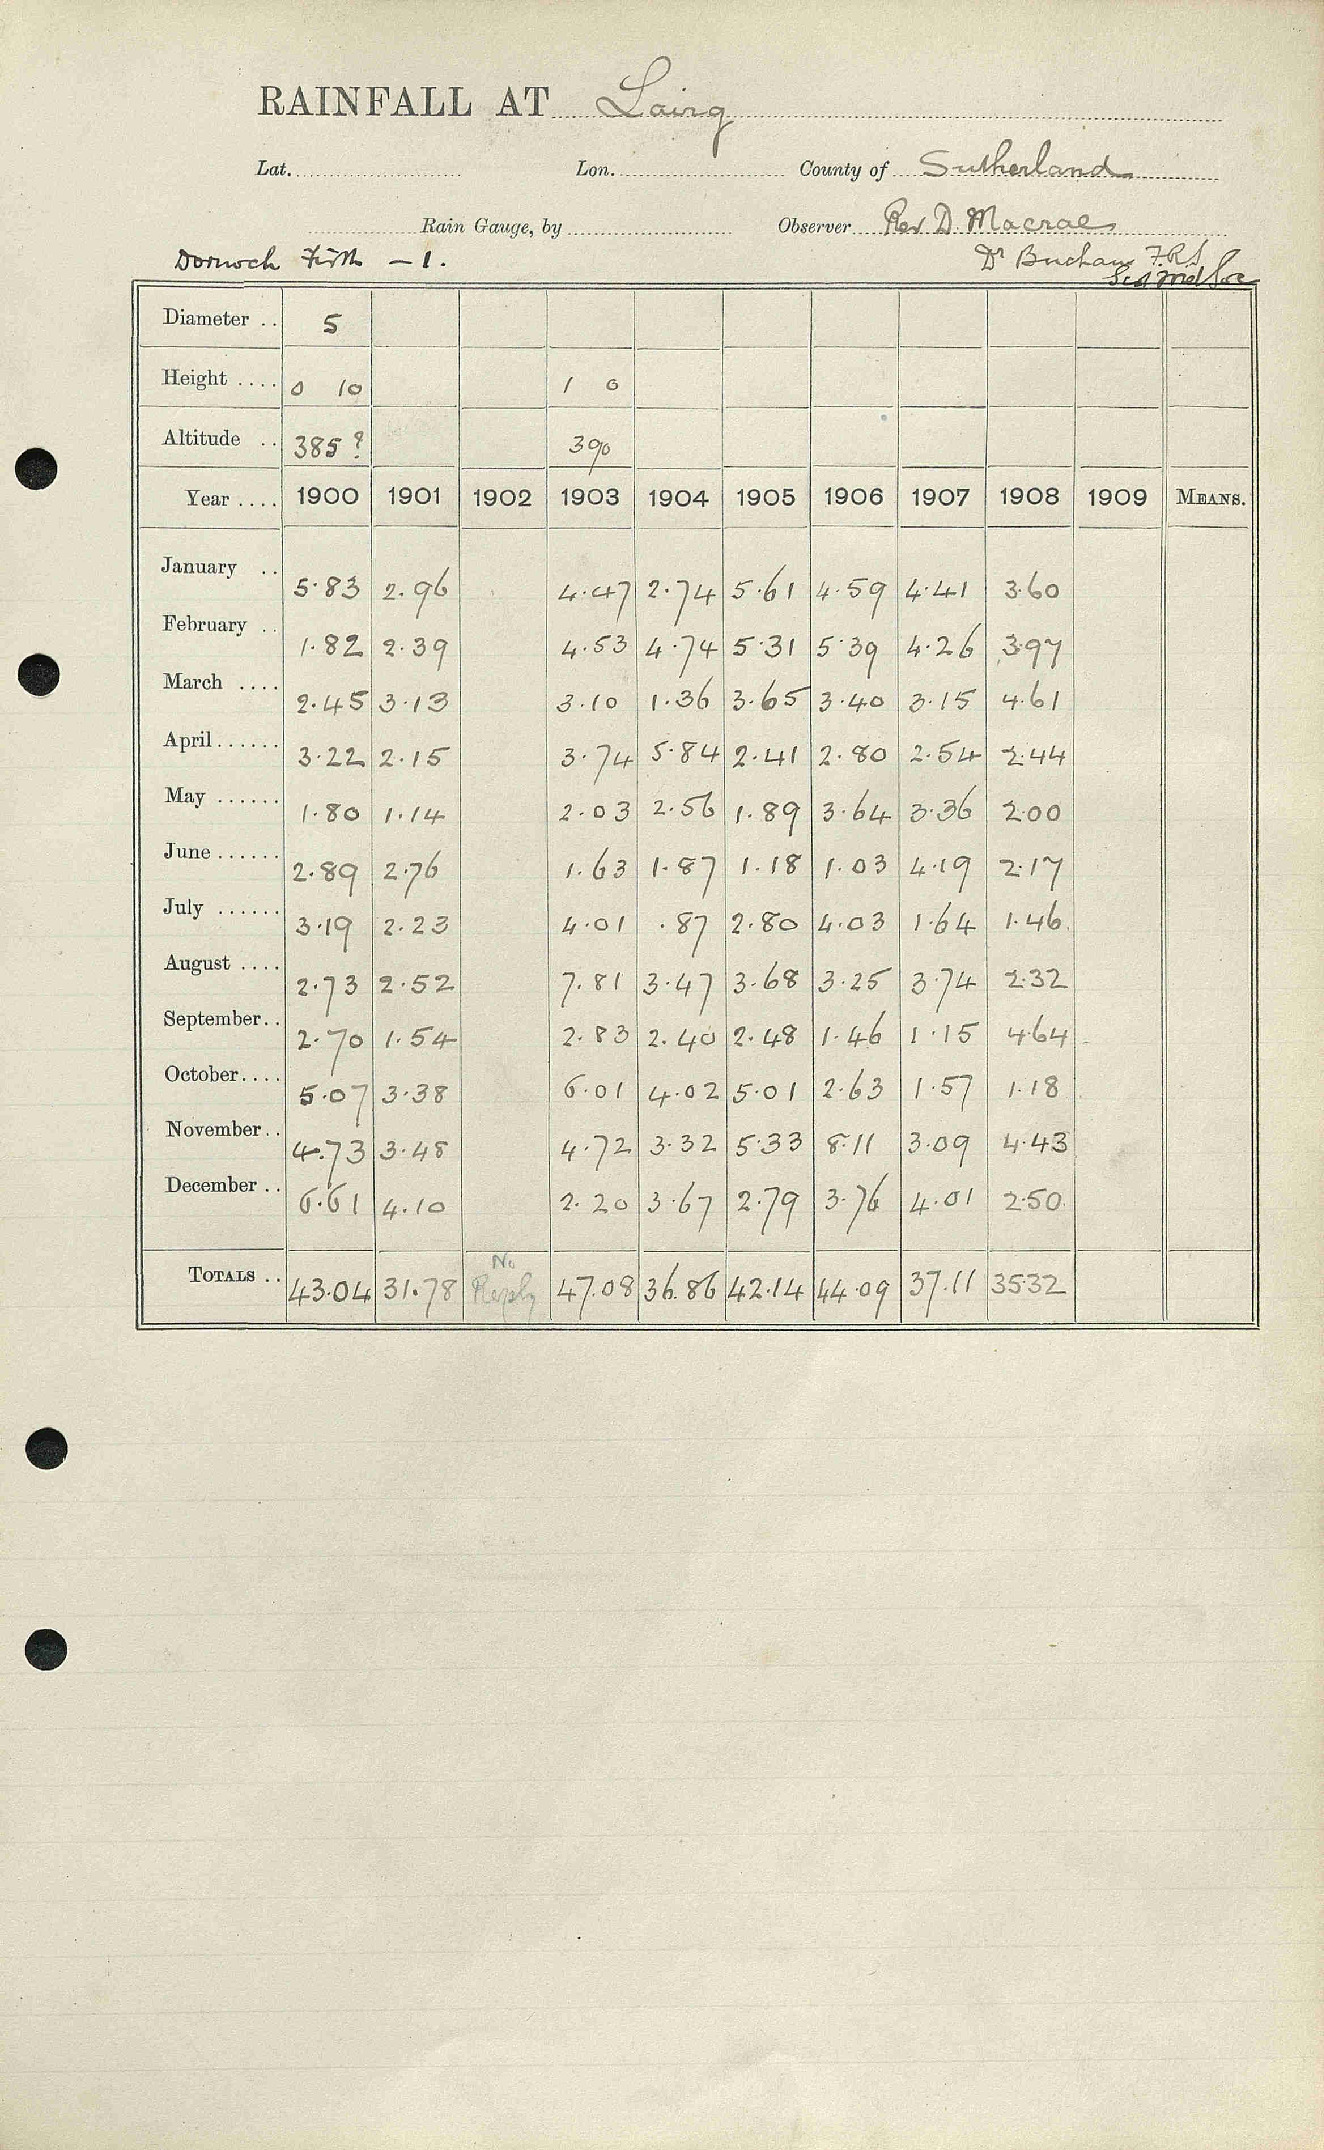 RAINFALL AT Lairg
Lat. Lon. County of Sutherland
Rain Gauge, by Observer Rev D. Macrae
Dornoch Firth – 1. Dr Buchan F.R.S
Scot Met Soc
Diameter .. 5
Height .... 0 10 1 0
Altitude .. 385? 390
Year .... 1900 1901 1902 1903 1904 1905 1906 1907 1908 1909 MEANS.
January .. 5.83 2.96 4.47 2.74 5.61 4.59 4.41 3.60
February .. 1.82 2.39 4.53 4.74 5.31 5.39 4.26 3.97
March .... 2.45 3.13 3.10 1.36 3.65 3.40 3.15 4.61
April ...... 3.22 2.15 3.74 5.84 2.41 2.80 2.54 2.44
May ...... 1.80 1.14 2.03 2.56 1.89 3.64 3.36 2.00
June ...... 2.89 2.76 1.63 1.87 1.18 1.03 4.19 2.17
July ...... 3.19 2.23 4.01 .87 2.80 4.03 1.64 1.46
August .... 2.73 2.52 7.81 3.47 3.68 3.25 3.74 2.32
September .. 2.70 1.54 2.83 2.40 2.48 1.46 1.15 4.64
October .... 5.07 3.38 6.01 4.02 5.01 2.63 1.57 1.18
November .. 4.73 3.48 4.72 3.32 5.33 8.11 3.09 4.43
December .. 6.61 4.10 2.20 3.67 2.79 3.76 4.01 2.50
TOTALS .. 43.04 31.78 No Reply 47.08 36.86 42.14 44.09 37.11 35.32